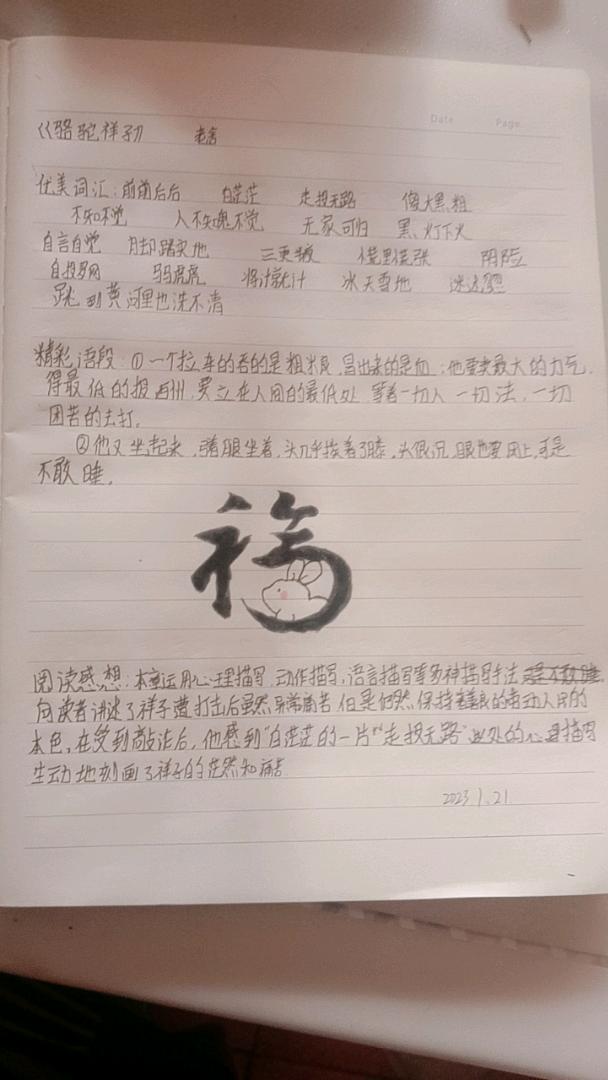 Date Page
《骆驼祥子》 老舍
优美词汇：前前后后 白茫茫 走投无路 傻大黑粗
不知不觉 人不知鬼不觉 无家可归 黑灯下火
自言自觉 脚踏实地 三更半夜 慌里慌张 阴险
自投罗网 马马虎虎 将计就计 冰天雪地 迷迷
跳到黄河里也洗不清
精彩语段：①一个拉车的吞的是粗粮，冒出来的是血；他要卖最大的力气，
得最低的报酬，要立在人间的最低处，等着一切人一切法，一切
困苦的击打。
②他又坐起来，弯腿坐着，头几乎挨着了膝，头很沉，眼也要闭上，可是
不敢睡。
福
阅读感想：本章运用心理描写，动作描写，语言描写等多种描写手法
向读者讲述了祥子遭打击后虽然异常痛苦但是仍然保持善良的劳动人民的
本色，在受到敲诈后，他感到"白茫茫的一片""走投无路"此处的心理描写
生动地刻画了祥子的茫然和痛苦
2023.1.21